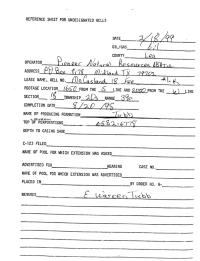 REFERENCE SHEET FOR UNDESIGNATED WELLS
DATE 2/18/99
OIL/GAS Oil
COUNTY Lea
OPERATOR Pioneer Natural Resources USA Inc
ADDRESS PO Box 3178 Midland TX 79702
LEASE NAME, WELL NO. McCasland 18 Fee
FOOTAGE LOCATION 1650 FROM THE S LINE AND FROM THE W LINE
SECTION 18 TOWNSHIP RANGE
COMPLETION DATE 8/20/98
NAME OF PRODUCING FORMATION Tubb
TOP OF PERFORATIONS 6582-6778
DEPTH TO CASING SHOE
C-123 FILED
NAME OF POOL FOR WHICH EXTENSION WAS ASKED
ADVERTISED FOR HEARING CASE NO.
NAME OF POOL FOR WHICH EXTENSION WAS ADVERTISED
PLACED IN BY ORDER NO. R-
REMARKS
E Warren Tubb